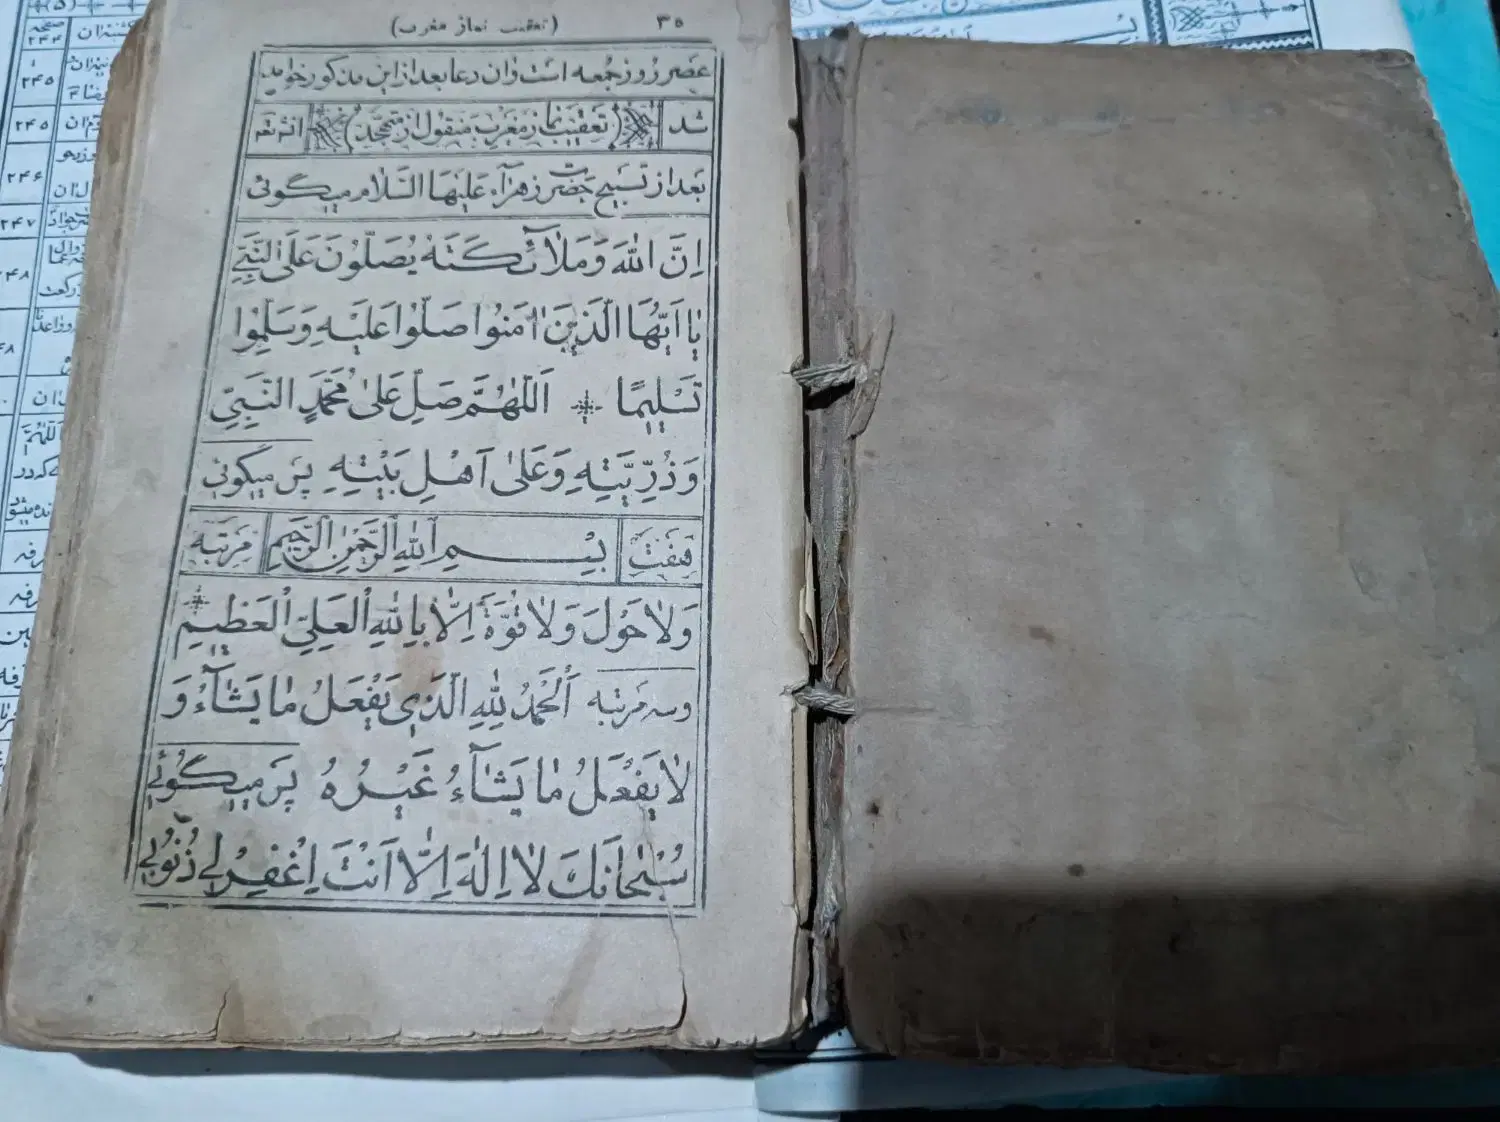 ۳۵ (تعقیب نماز مغرب)
عصر روز جمعه است وان دعا بعد از این مذکور خواهد
شد (تعقیب نماز مغرب منقول از متهجد) انستم
بعد از تسبیح حضرت زهراء علیها السلام میگوئی
اِنَّ اللهَ وَمَلآئِكَتَهُ يُصَلّوُنَ عَلَى النَّبِيِّ
يٰا اَيُّهَا الَّذينَ اٰمَنُوا صَلُّوا عَلَيْهِ وَسَلِّمُوا
تَسْليمًا اَللّٰهُمَّ صَلِّ عَلىٰ مُحَمَّدٍ النَّبِيِّ
وَذُرِّيَّتِهِ وَعَلىٰ اَهْلِ بَيْتِهِ پس میگوئی
هفت بِسْمِ اللهِ الرَّحْمٰنِ الرَّحيمِ مرتبه
وَلٰا حَوْلَ وَلٰا قُوَّةَ اِلّٰا بِاللهِ الْعَلِيِّ الْعَظيمِ
وسه مرتبه اَلْحَمْدُ لِلّٰهِ الَّذي يَفْعَلُ مٰا يَشٰآءُ وَ
لٰا يَفْعَلُ مٰا يَشٰآءُ غَيْرُهُ پس میگوئی
سُبْحٰانَكَ لٰا اِلٰهَ اِلّٰا اَنْتَ اِغْفِرْ لي ذُنُوبي
۲۴۵
۲۴۵
۲۴۶
۲۴۷